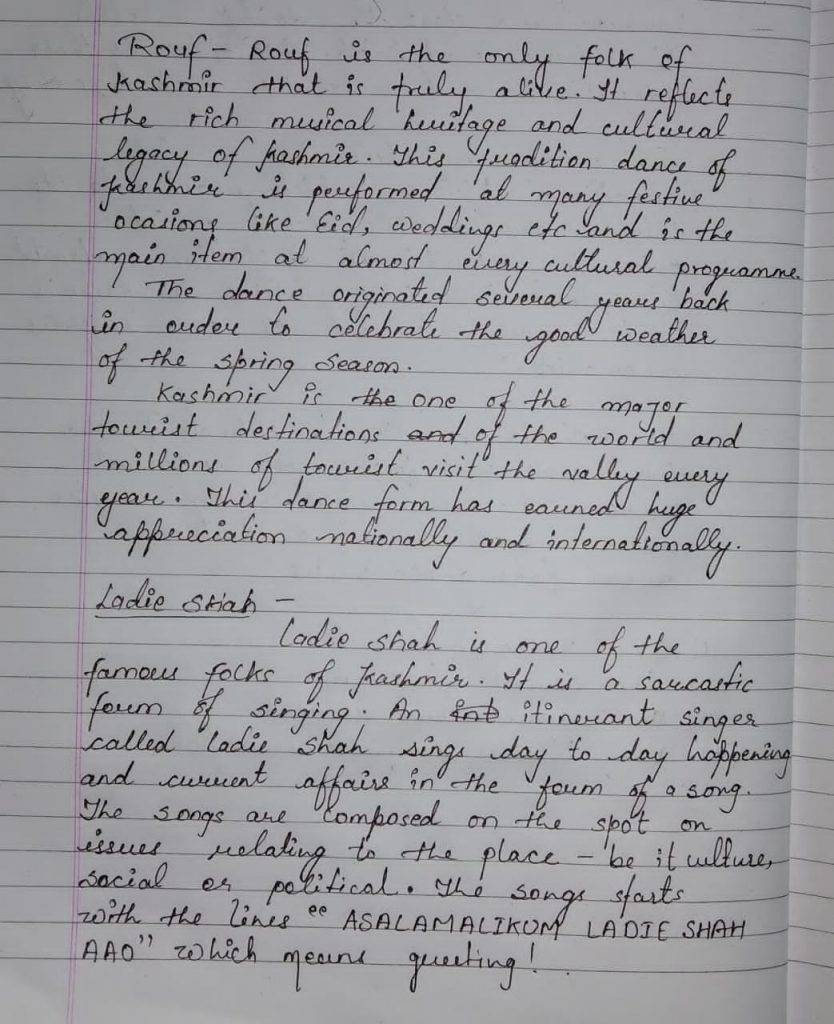 Rouf - Rouf is the only folk of
Kashmir that is truly alive. It reflects
the rich musical heritage and cultural
legacy of Kashmir. This tradition dance of
Kashmir is performed at many festive
ocasions like Eid, weddings etc and is the
main item at almost every cultural programme.
The dance originated several years back
in order to celebrate the good weather
of the spring season.
Kashmir is the one of the major
tourist destinations and of the world and
millions of tourist visit the valley every
year. This dance form has earned huge
appreciation nationally and internationally.
Ladie Shah -
Ladie shah is one of the
famous folks of Kashmir. It is a sarcastic
form of singing. An int itinerant singer
called ladie shah sings day to day happening
and current affairs in the form of a song.
The songs are composed on the spot on
issues relating to the place - be it culture,
social or political. The songs starts
with the lines "ASALAMALIKOM LADIE SHAH
AAO" which means greeting!